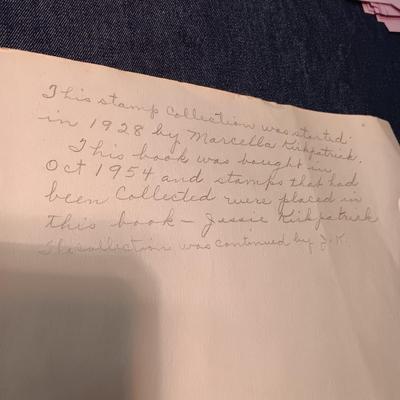 This stamp collection was started
in 1928 by Marcella Kirkpatrick.
This book was bought in
Oct 1954 and stamps that had
been Collected were placed in
this book – Jessie Kirkpatrick
The collection was continued by J.K.